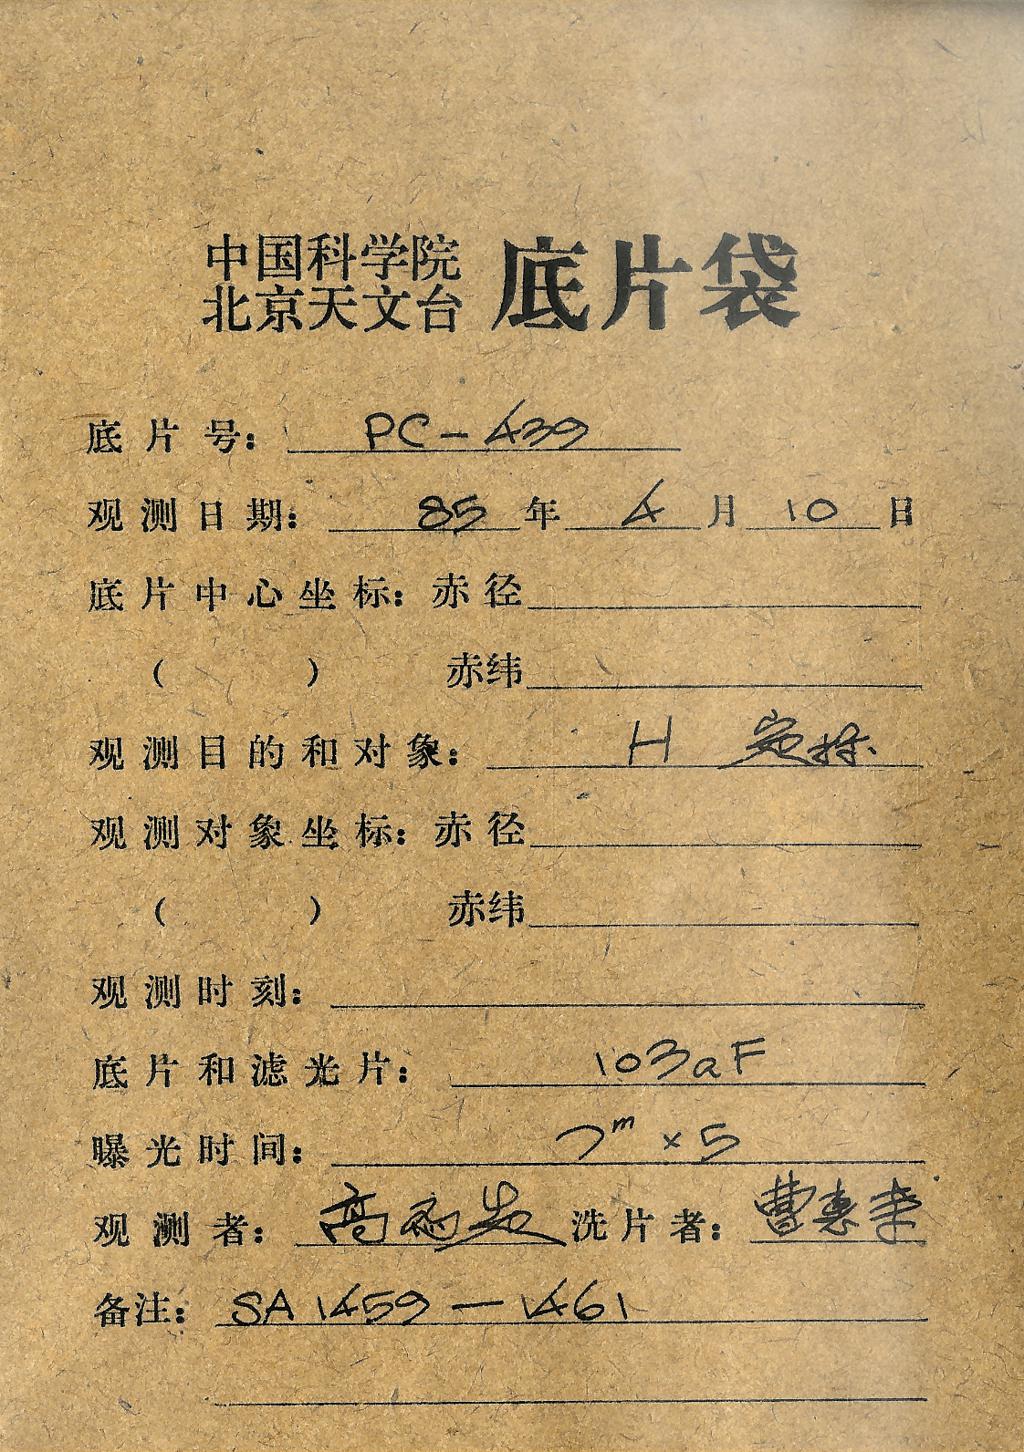 中国科学院
北京天文台 底片袋
底片号: PC-439
观测日期: 85年4月10日
底片中心坐标: 赤径
( ) 赤纬
观测目的和对象: H 定标
观测对象坐标: 赤径
( ) 赤纬
观测时刻:
底片和滤光片: 103aF
曝光时间: 7m×5
观测者: 高 洗片者: 曹惠来
备注: SA 1459—1461